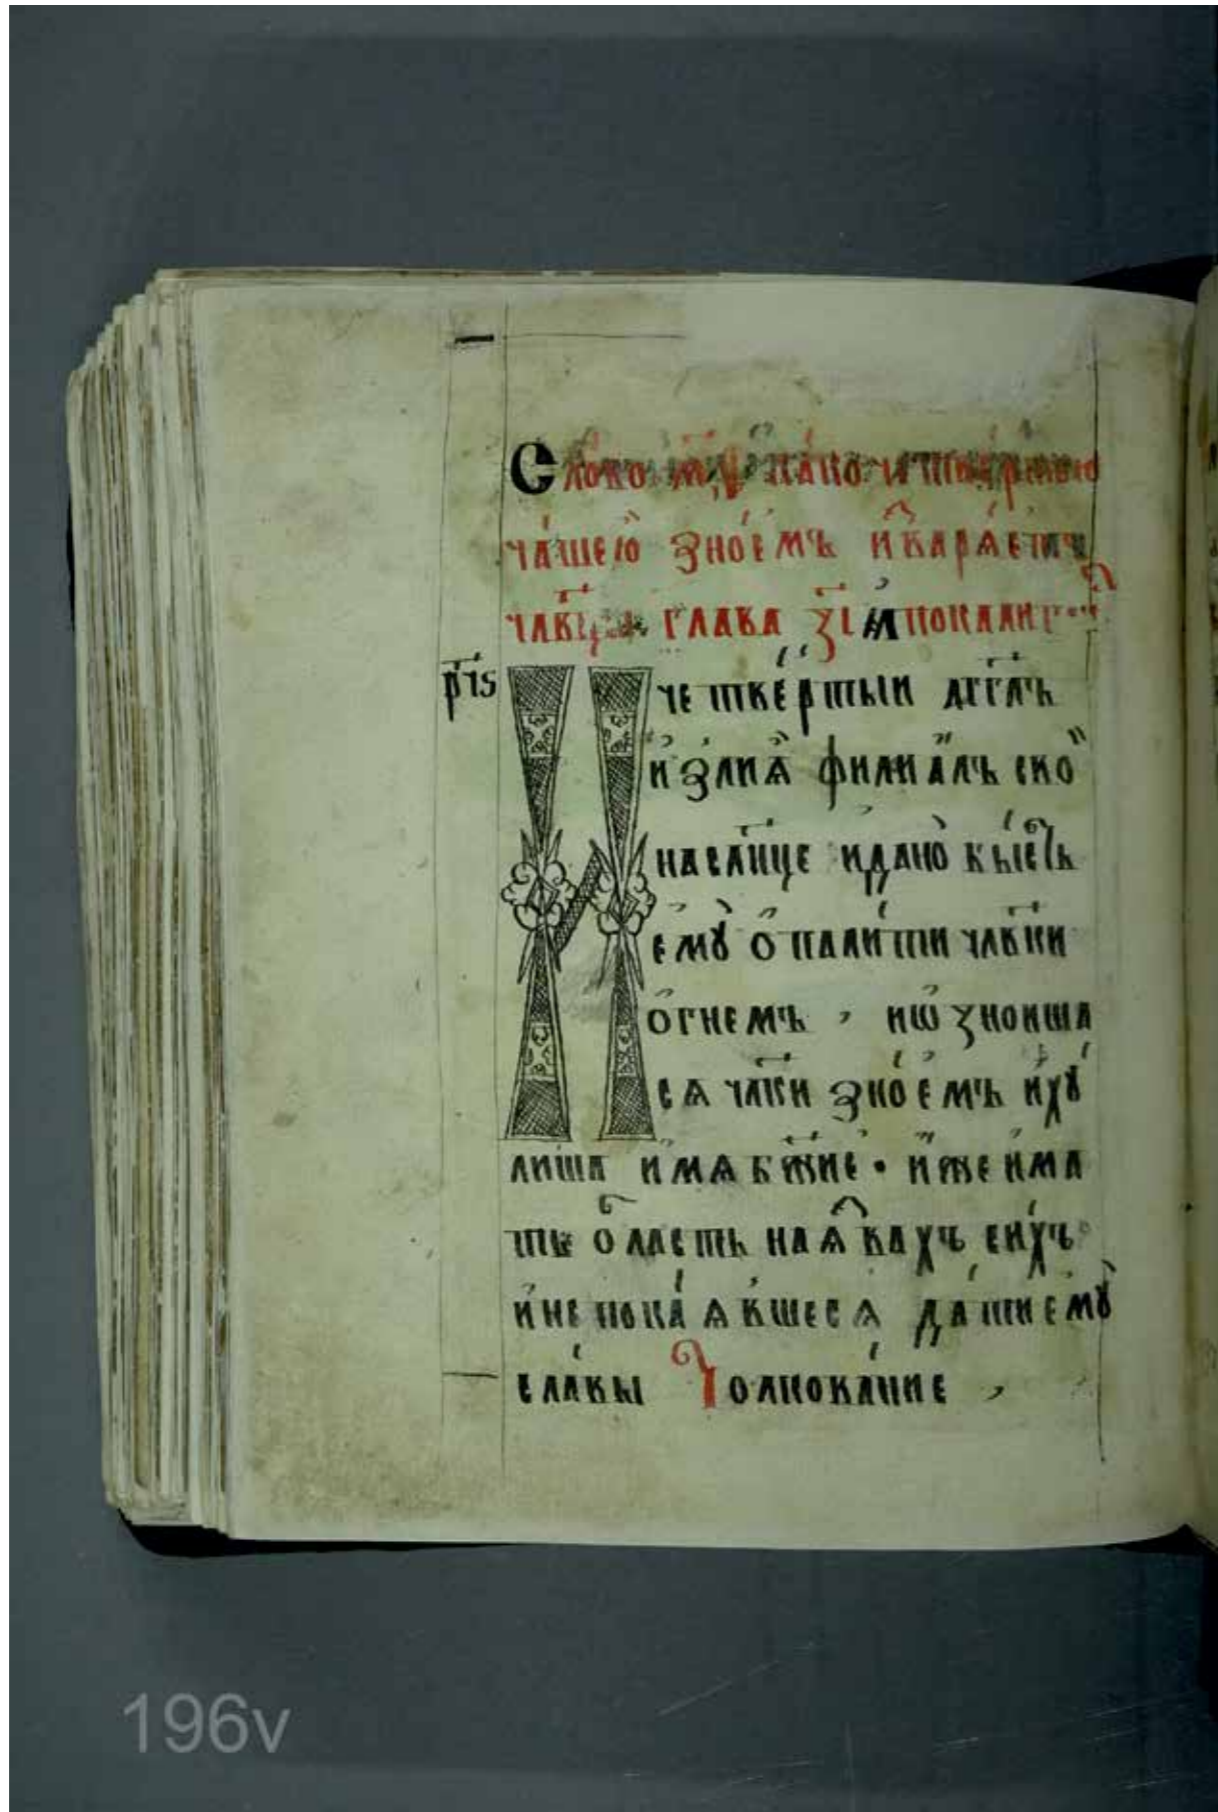 Слово м҃ѳ како четвертою
чашею зноемъ и варѧетчⷭ
члв҃цы глава з҃і апокалипⷭ
рч҃ѕ
И четвертыи агг҃лъ
изліѧ фиилиалъ свои
на слн҃це и дано быⷭть
ему опалити члв҃ки
огнемъ , и ѡзноиша
сѧ члв҃ки зноемъ и ху
лиша имѧ бж҃ие · иже има
ть область на ѧзвахъ сихъ
и не покаѧвшесѧ дати ему
славы Толкование ,
196v